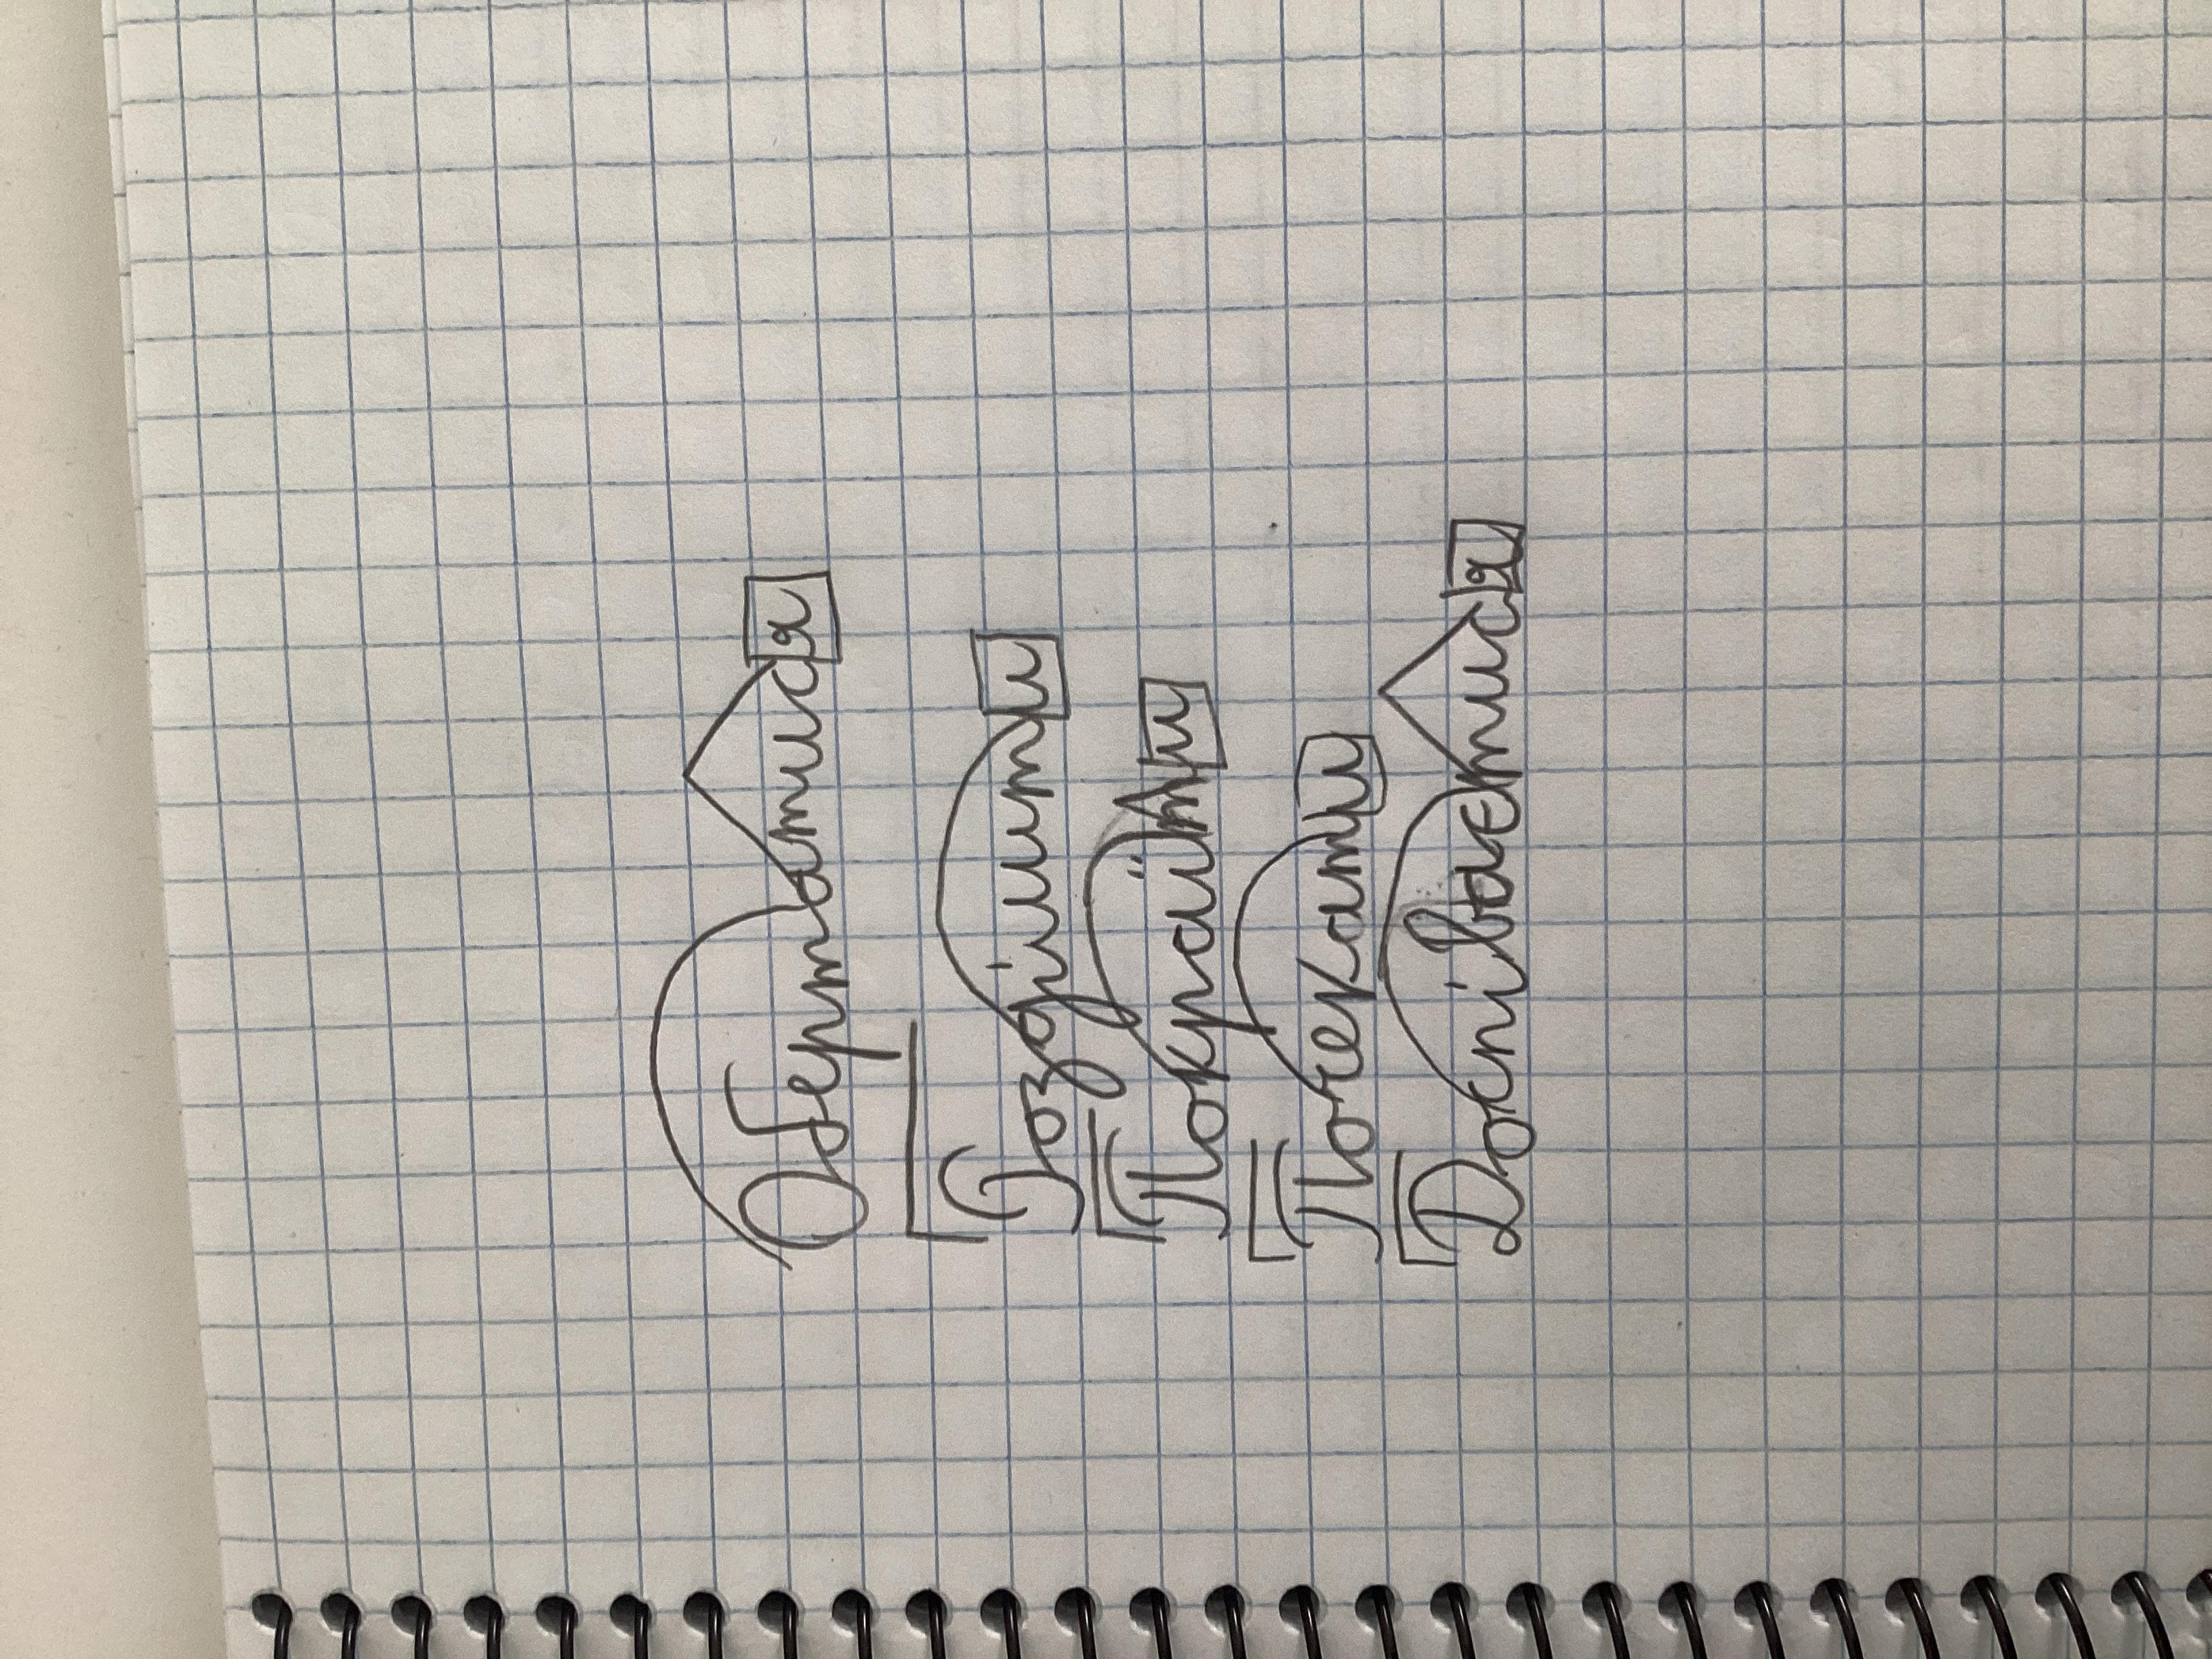 Обертатися
Розділити
Покраїти
Почекати
Доспіваєтися